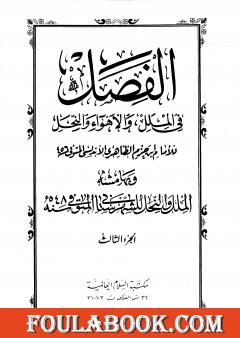 الفصل
في الملل والأهواء والنحل
للإمام ابن حزم الظاهري الأندلسي
وبهامشه
الملل والنحل للشهرستاني المتوفى سنة ٥٤٨
الجزء الثالث
مكتبة السلام العالمية
FOULABOOK.COM